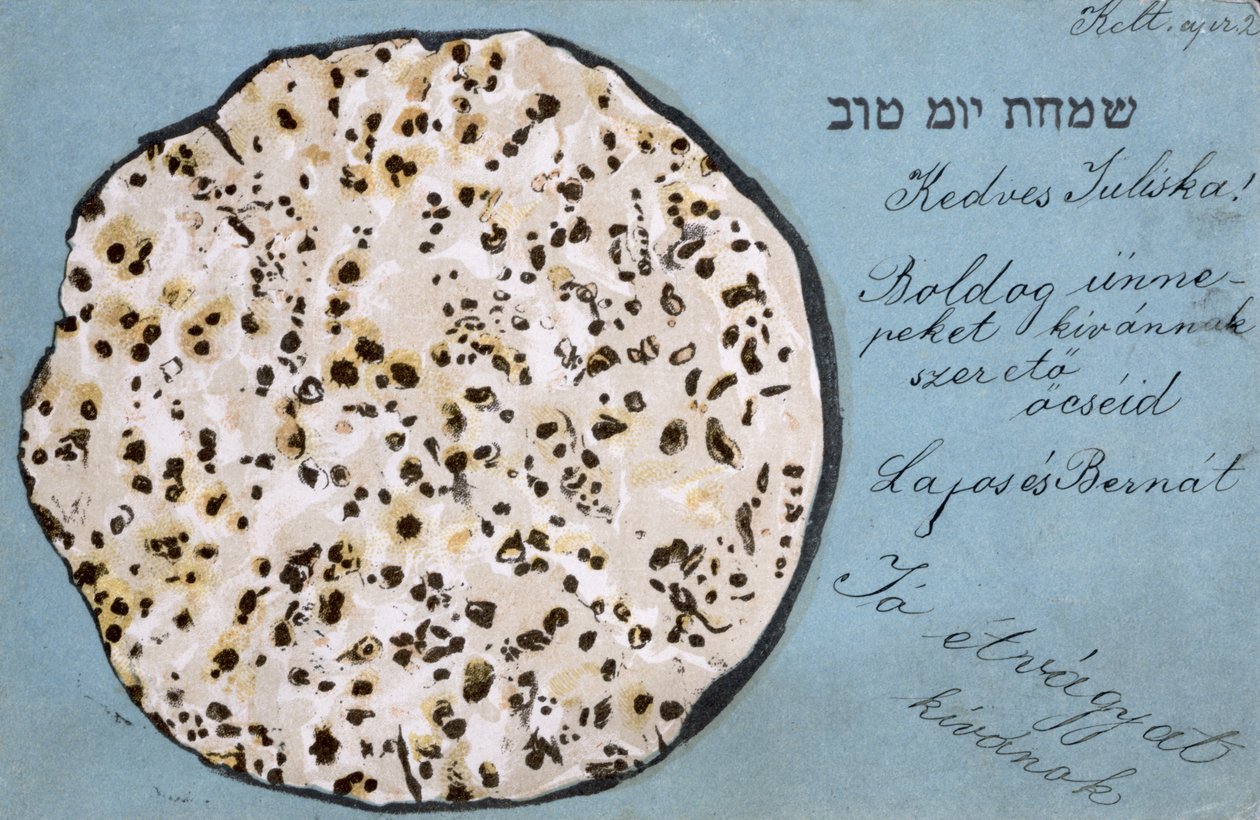 Kelt. apr. 2
שמחת יומ טוב
Kedves Juliska!
Boldog ünne-
peket kívánnak
szerető
öcséid
Lajos és Bernát
Jó
étvágyat
kívánok